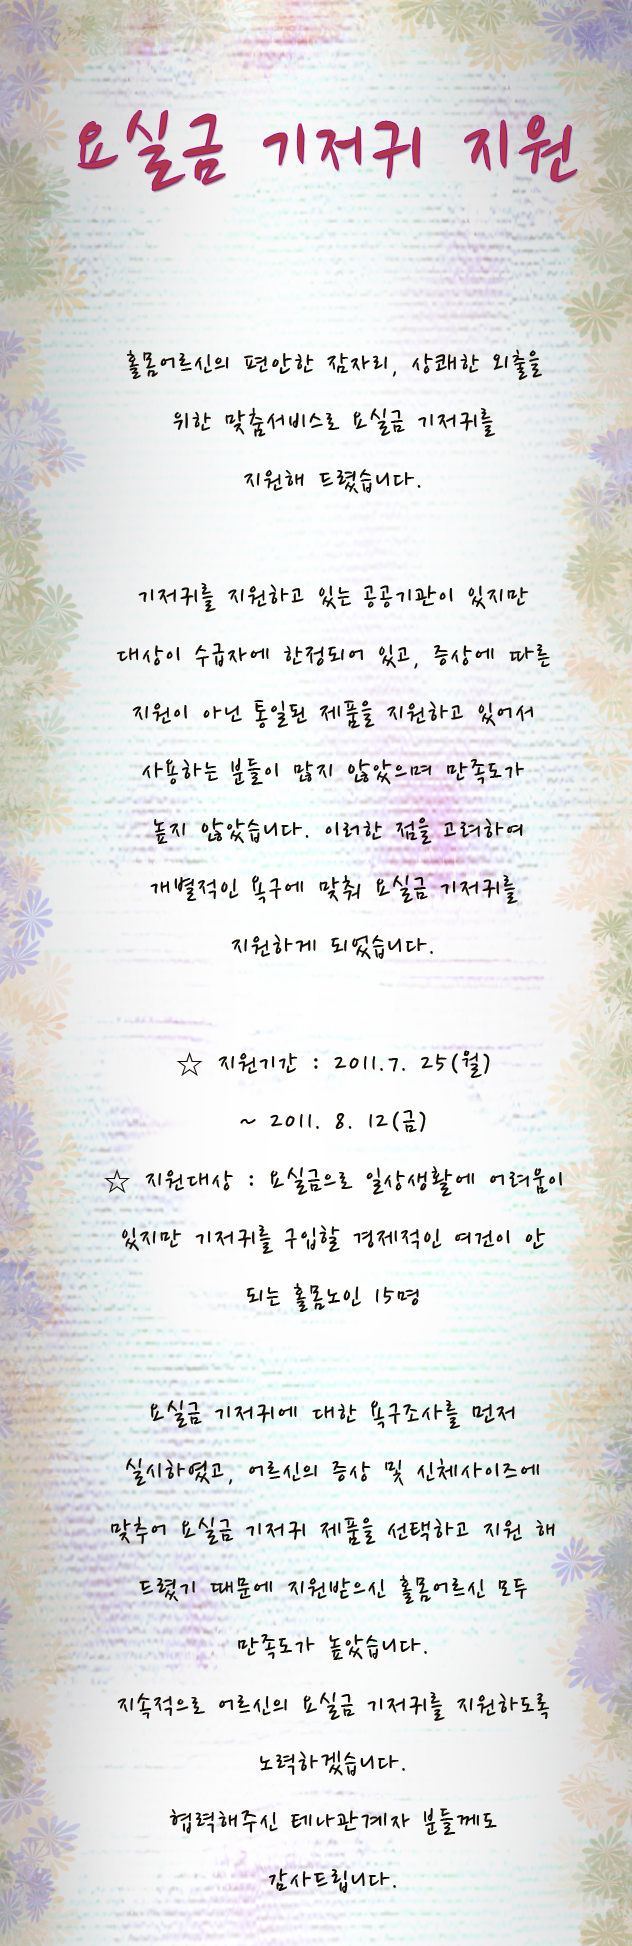 요실금 기저귀 지원
홀몸어르신의 편안한 잠자리, 상쾌한 외출을
위한 맞춤서비스로 요실금 기저귀를
지원해 드렸습니다.
기저귀를 지원하고 있는 공공기관이 있지만
대상이 수급자에 한정되어 있고, 증상에 따른
지원이 아닌 통일된 제품을 지원하고 있어서
사용하는 분들이 많지 않았으며 만족도가
높지 않았습니다. 이러한 점을 고려하여
개별적인 욕구에 맞춰 요실금 기저귀를
지원하게 되었습니다.
☆ 지원기간 : 2011.7. 25(월)
~ 2011. 8. 12(금)
☆ 지원대상 : 요실금으로 일상생활에 어려움이
있지만 기저귀를 구입할 경제적인 여건이 안
되는 홀몸노인 15명
요실금 기저귀에 대한 욕구조사를 먼저
실시하였고, 어르신의 증상 및 신체사이즈에
맞추어 요실금 기저귀 제품을 선택하고 지원 해
드렸기 때문에 지원받으신 홀몸어르신 모두
만족도가 높았습니다.
지속적으로 어르신의 요실금 기저귀를 지원하도록
노력하겠습니다.
협력해주신 테나관계자 분들께도
감사드립니다.